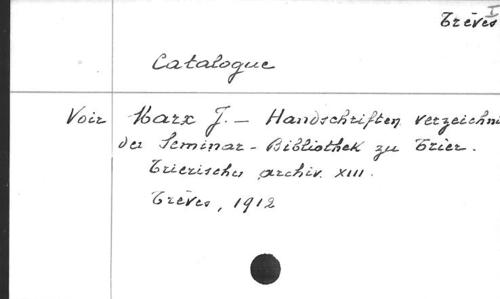 Trèves I
Catalogue
Voir Marx J. — Handschriften verzeichni
der Seminar - Bibliothek zu Trier.
Trierisches archiv. XIII.
Trèves, 1912